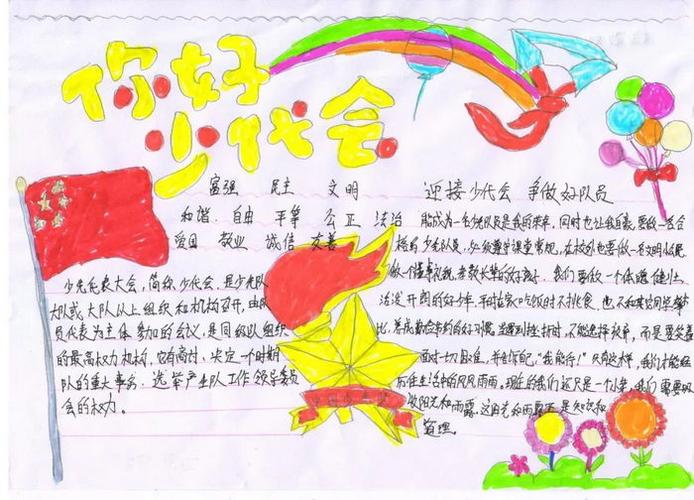 你好
少代会
富强 民主 文明
和谐 自由 平等 公正 法治
爱国 敬业 诚信 友善
少先代表大会，简称少代会，是少先队
大队或大队以上组织和机构召开，由队
员代表为主体参加的会议，是同级队组织
的最高权力机构，它有商讨、决定一个时期
队的重大事务，选举产生队工作领导委员
会的权力。
迎接少代会 争做好队员
能成为一名少先队员是我的荣幸，同时也让我自豪，要做一名合
格的少先队员，必须遵守课堂常规，在校外也要做一名文明小公民
做一个懂事礼貌，孝敬长辈的好孩子，我们要做一个体魄健壮、
活泼开朗的好少年，平时在家吃饭时不挑食，也不和其它同学攀
比，养成勤俭节约的好习惯，当遇到挫折时，不能选择放弃，而是要笑着
面对一切困难，并告诉自己，"我能行！"只有这样，我们才能经
历住生活中的风风雨雨，现在的我们还只是一个小苗，我们需要吸
收阳光和雨露，这阳光和雨露正是知识和
道理。